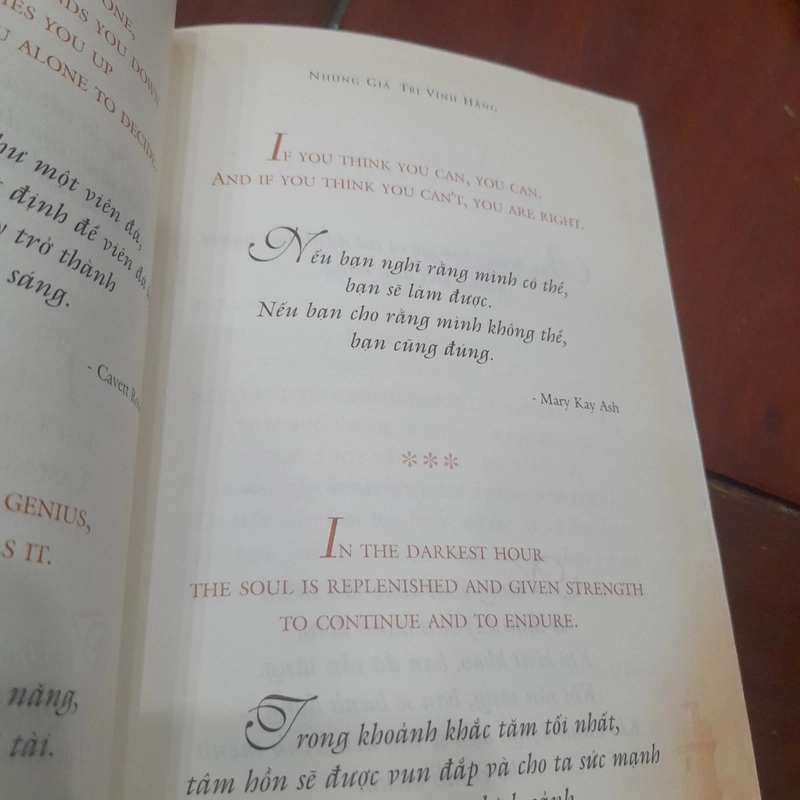 ONE,
NDS YOU DOWN
IES YOU UP
U ALONE TO DECIDE.
hư một viên đá,
định để viên đá
trở thành
sáng.
- Cavett
GENIUS,
S IT.
năng,
tài.
NHỮNG GIÁ TRỊ VĨNH HẰNG
IF YOU THINK YOU CAN, YOU CAN.
AND IF YOU THINK YOU CAN'T, YOU ARE RIGHT.
Nếu bạn nghĩ rằng mình có thể,
bạn sẽ làm được.
Nếu bạn cho rằng mình không thể,
bạn cũng đúng.
- Mary Kay Ash
***
IN THE DARKEST HOUR
THE SOUL IS REPLENISHED AND GIVEN STRENGTH
TO CONTINUE AND TO ENDURE.
Trong khoảnh khắc tăm tối nhất,
tâm hồn sẽ được vun đắp và cho ta sức mạnh